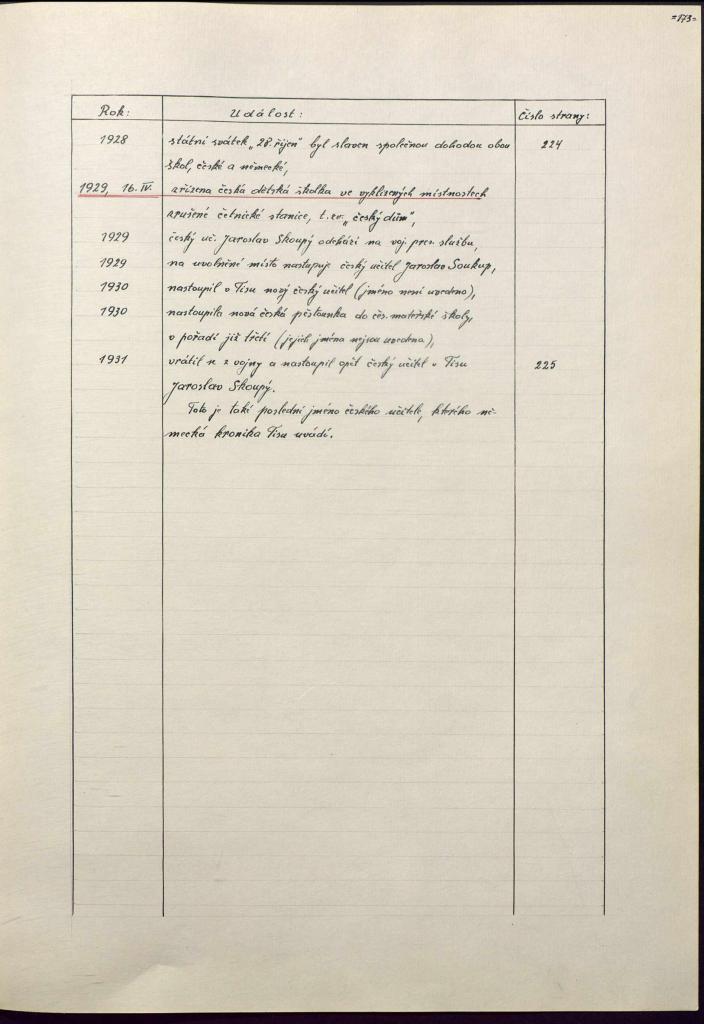 =173=
Rok: Událost: Číslo strany:
1928 státní svátek „28. říjen" byl slaven společnou dohodou obou 224
škol, české a německé,
1929, 16. IV. zřízena česká dětská školka ve vyklizených místnostech
zrušené četnické stanice, t. zv. „český dům",
1929 český uč. Jaroslav Skoupý odchází na voj. pres. službu,
1929 na uvolněné místo nastupuje český učitel Jaroslav Soukup,
1930 nastoupil v Tisu nový český učitel (jméno není uvedeno),
1930 nastoupila nová česká pěstounka do čes. mateřské školy,
v pořadí již třetí (jejich jména nejsou uvedena),
1931 vrátil se z vojny a nastoupil opět český učitel v Tisu 225
Jaroslav Skoupý.
Toto je také poslední jméno českého učitele, kterého ně-
mecká kronika Tisu uvádí.